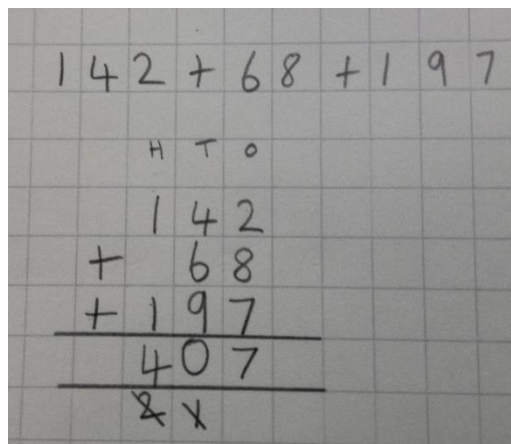 142 + 68 + 197
H T O
142
+ 68
+ 197
407
2 1